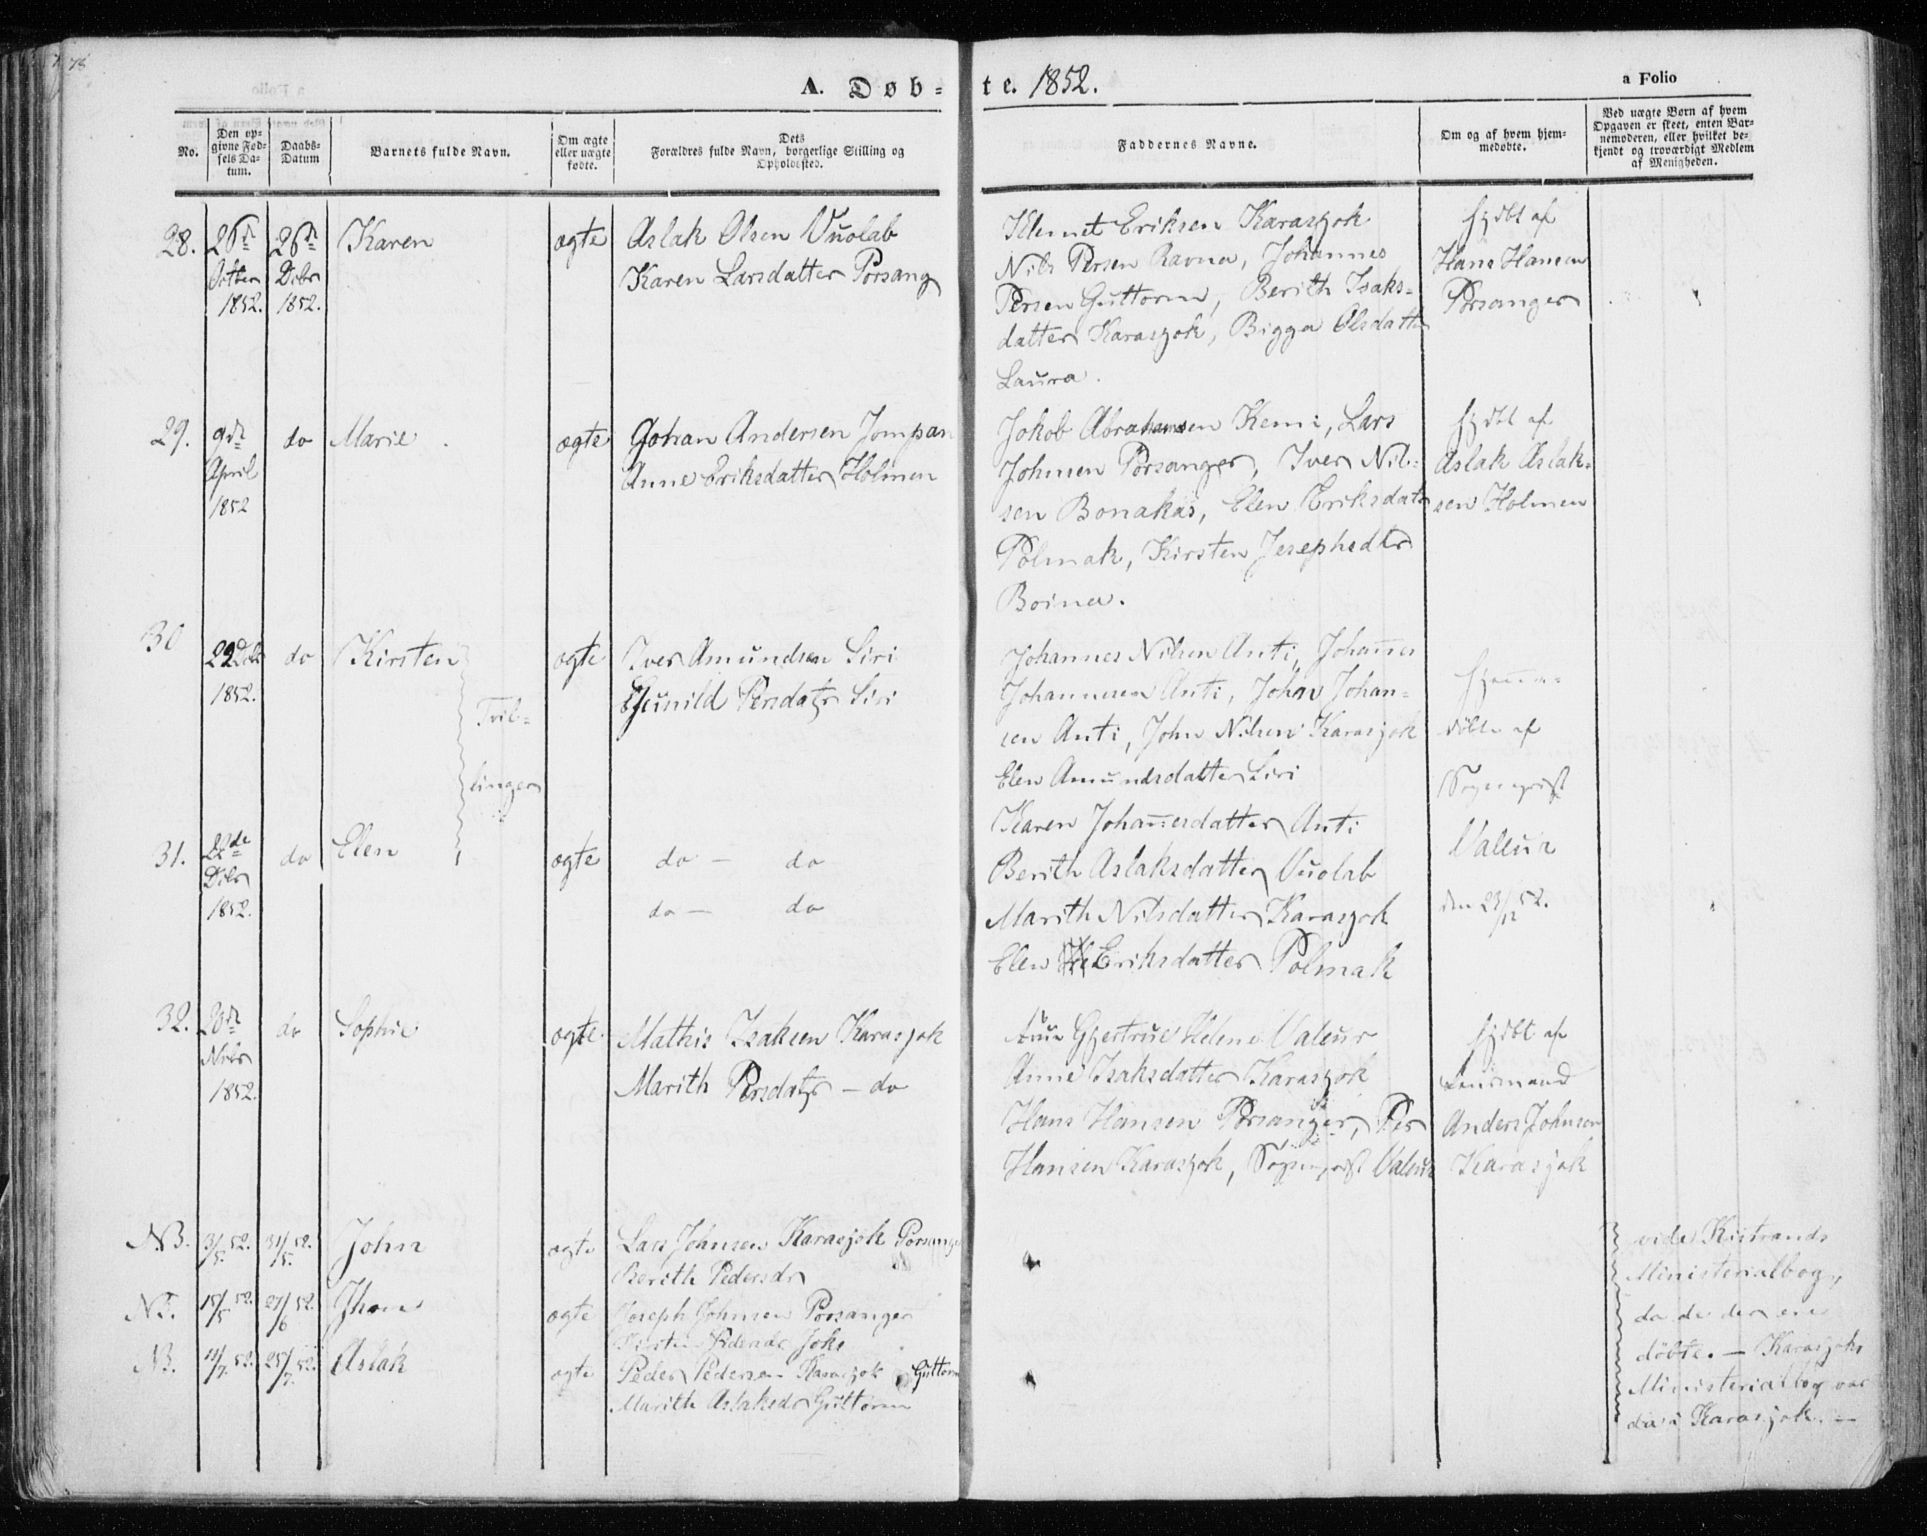 78
A. Døb-
te. 1852.
a Folio
No.
Den op-
givne Fød-
sels Da-
tum.
Daabs-
Datum
Barnets fulde Navn.
Om ægte
eller uægte
fødte.
Dets
Forældres fulde Navn, borgerlige Stilling og
Opholdssted.
Faddernes Navne.
Om og af hvem hjem-
medøbte.
Ved uægte Børn af hvem
Opgaven er skeet, enten Bar-
nemoderen, eller hvilket be-
kjendt og troværdigt Medlem
af Menigheden.
28.
26de
1852.
26de
Dcbr
1852.
Karen
ægte
Aslak Olsen Vuolab
Karen Larsdatter Porsang
Klemet Eriksen Karasjok
Nils Persen Ravna, Johannes
Persen Guttorm, Berith Isaks-
datter Karasjok, Bigga Olsdatter
Laura.
hjdbt af
Hans Hansen
Porsanger
29.
9de
April
1852
do
Marie
ægte
Johan Andersen Jompan
Anne Eriksdatter Holmen
Jokob Abrahamsen Kemi, Lars
Johnsen Porsanger, Iver Nil-
sen Bonakas, Elen Eriksdatr
Polmak, Kirsten Josephsdtr
Boine.
hjdbt af
Aslak Aslak-
sen Holmen
30
22 Dcbr
1852.
do
Kirsten
Tvil-
linger
ægte
Iver Amundsen Siri
Gunild Persdatr Siri
Johannes Nilsen Anti, Johañes
Johannesen Anti, John Johan-
sen Anti, John Nilsen Karasjok
Elen Amundsdatter Siri
Karen Johañesdatter Anti
Berith Aslaksdatter Vuolab
Marith Nilsdatter Karasjok
Elen Eriksdatter Polmak
hjeme-
døbte af
Sognepræst
Valeur
den 23/12 52.
31.
22de
Dcbr
1852.
do
Elen
ægte
do — do
do — do
32.
20de
Nvbr
1852.
do
Sophie
ægte
Mathis Isaksen Karasjok
Marith Persdatr — do
Frue Gjertrue Helene Valeur
Anne Isaksdatter Karasjok
Hans Hansen Porsanger, Per
Hansen Karasjok, Sognepræst Valeur
hjdbt af
Lensmand
Anders Johnsen
Karasjok
NB.
3/5 52.
31/5 52.
John
ægte
Lars Johnsen Karasjok Porsanger
Berith Pedersdr
NB.
15/5 52.
27/6 52.
Jhon
ægte
Joseph Johnsen Porsanger
Kirsten Pedersdr Joks
NB.
11/7 52.
25/7 52.
Aslak
ægte
Peder Pedersen Karasjok Guttorm
Marith Aslaksdr Guttorm
vide Kistrands
Ministerialbog,
da de der ere
døbte. — Karasjoks
Ministerialbog var
da i Karasjok. —